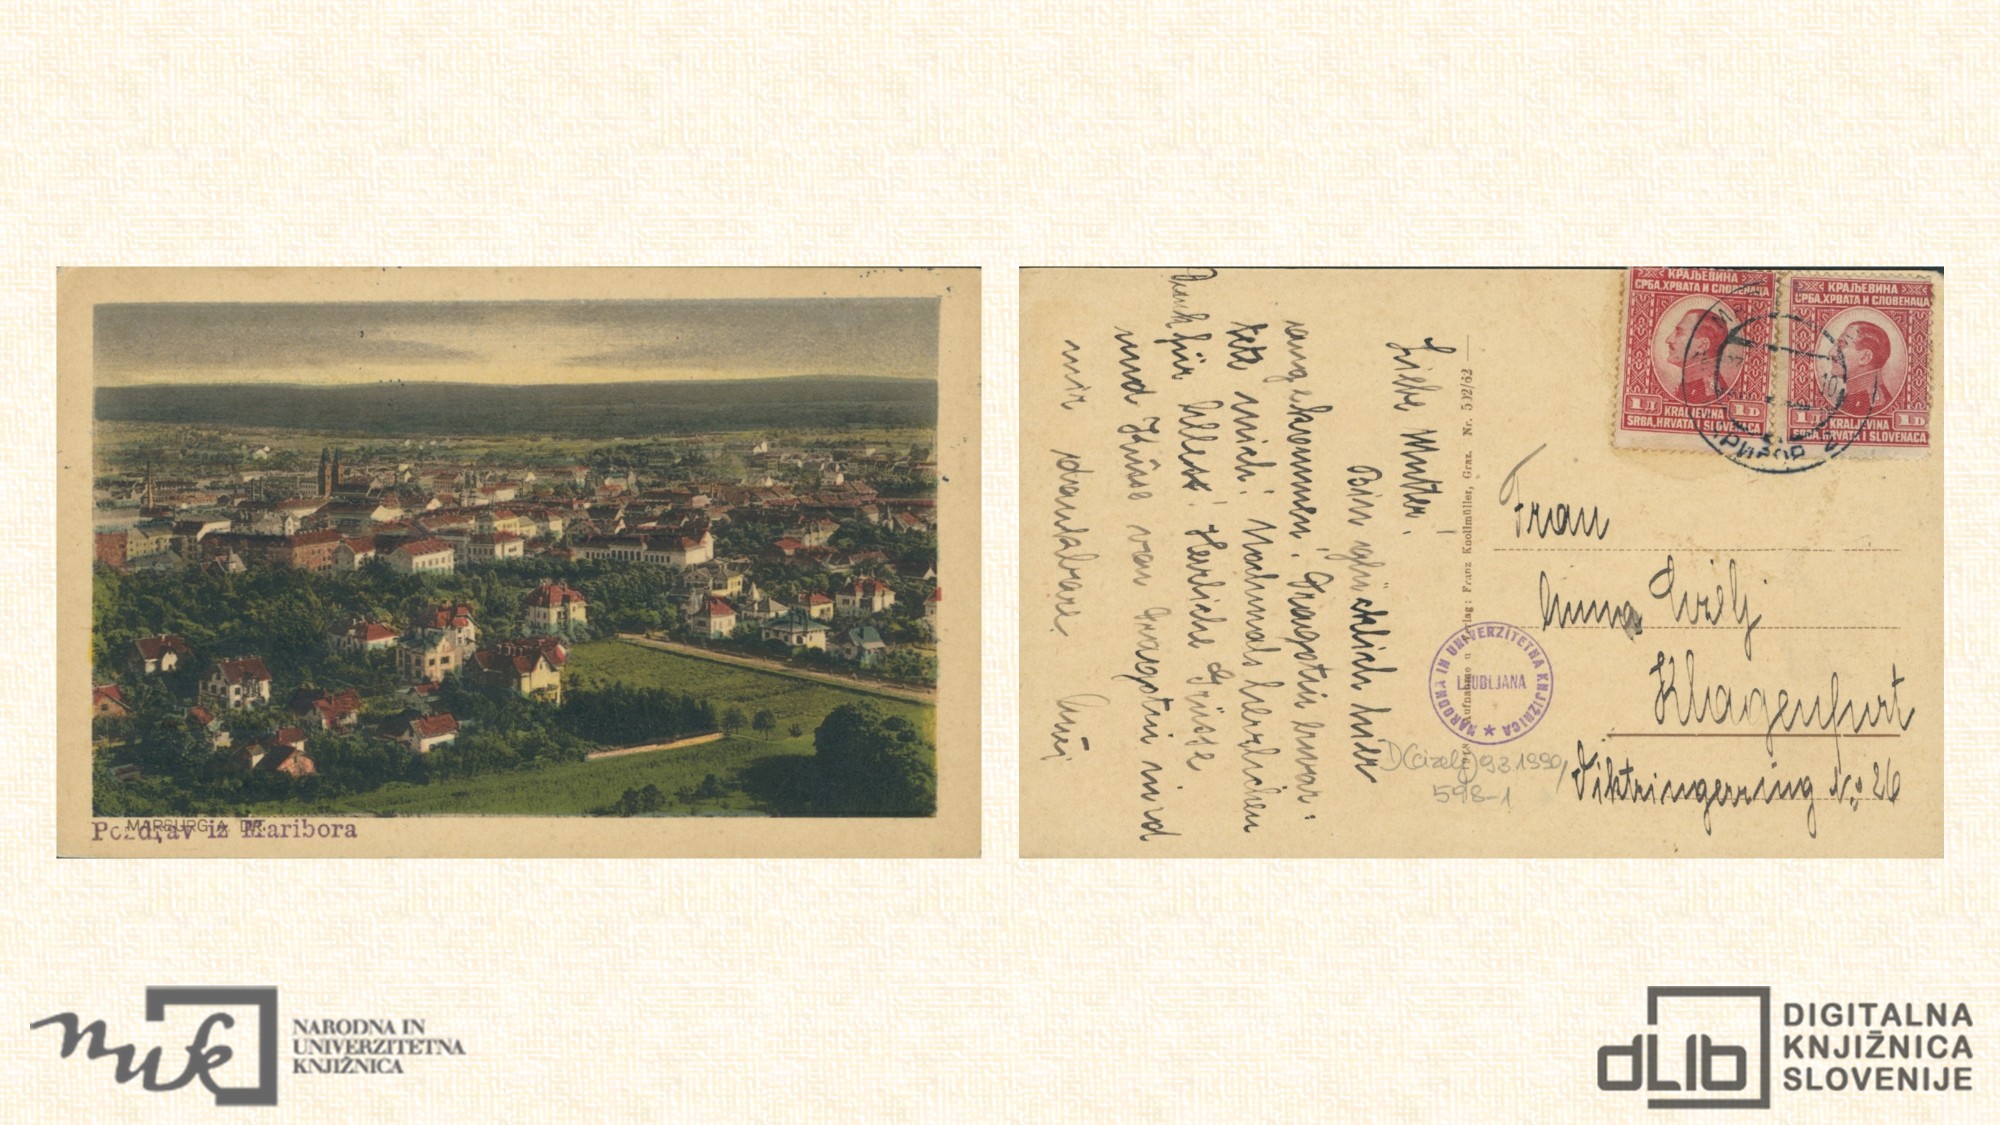 MARBURG A. DR.
Pozdrav iz Maribora
Liebe Mutter!
Bin glücklich hier
angekommen. Dragotin erwar-
tete mich. Nochmals herzlichen
Dank für alles! Herzliche Grüsse
und Küsse von Dragotin und
mir dankbare
Aufnahme u. Verlag: Franz Knollmüller, Graz. Nr. 502/62
КРАЉЕВИНА
СРБА, ХРВАТА И СЛОВЕНАЦА
1 Д 1 D
KRALJEVINA
SRBA, HRVATA I SLOVENACA
КРАЉЕВИНА
СРБА, ХРВАТА И СЛОВЕНАЦА
1 Д 1 D
KRALJEVINA
SRBA, HRVATA I SLOVENACA
Frau
Anna Cizelj
Klagenfurt
Viktringerring No 26
NARODNA IN UNIVERZITETNA KNJIŽNICA
LJUBLJANA
D(cizelj) 93.1990,
598-1
nuk
NARODNA IN
UNIVERZITETNA
KNJIŽNICA
dLib
DIGITALNA
KNJIŽNICA
SLOVENIJE